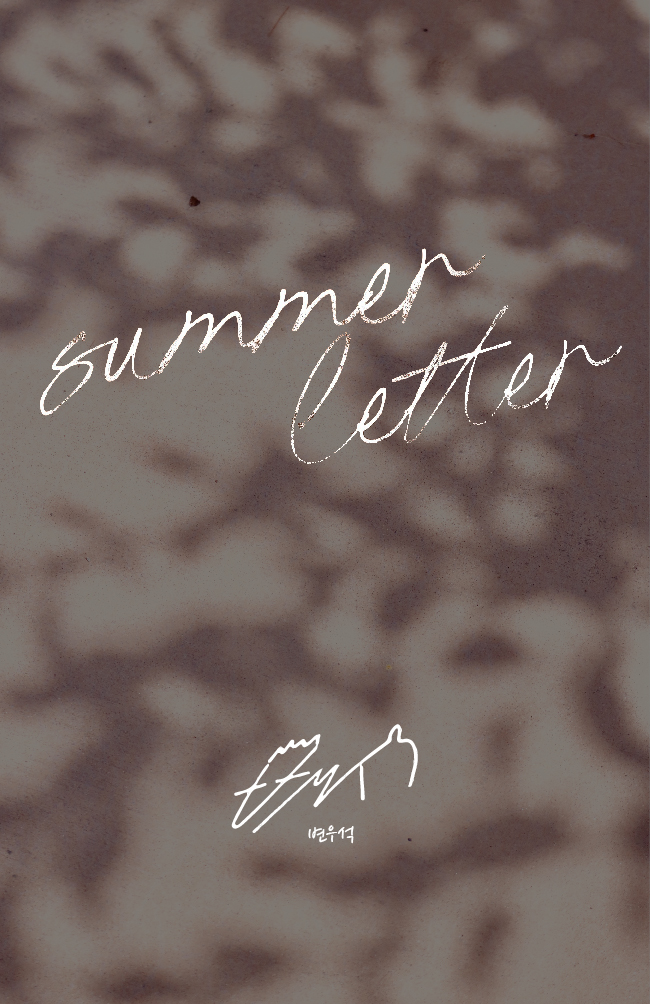 summer
letter
변우석